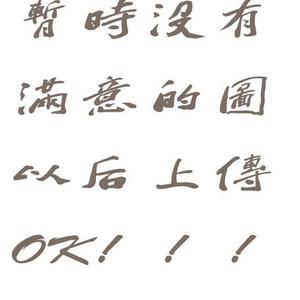 暫時没有
滿意的圖
以后上傳
OK!!!